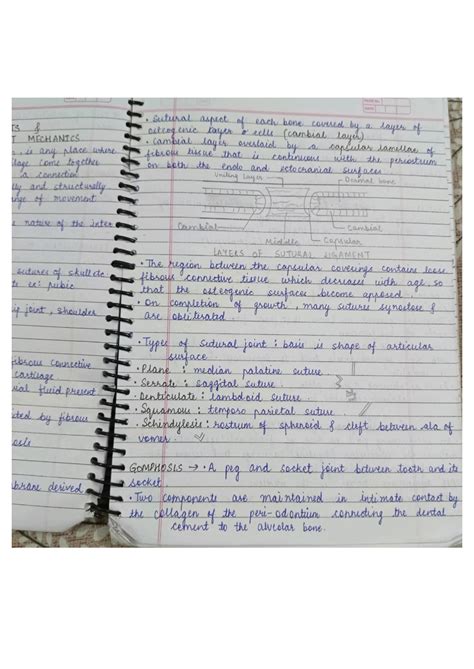 TS &
T MECHANICS
s, is any place where
lage come together
a connection
ly and structurally
nge of movement
e nature of the inter
sutures of skull etc.
ts ex: pubic
ip joint, shoulder
ibrous connective
cartilage
ial fluid present
ted by fibrous
brane derived
• Sutural aspect of each bone covered by a layer of
osteogenic layer & cells (cambial layer).
• Cambial layer overlaid by a capsular lamellae of
fibrous tissue that is continuous with the periosteum
on both the endo and ectocranial surfaces.
Uniting layer
Dermal bone
Cambial
Middle
Capsular
Cambial
LAYERS OF SUTURAL LIGAMENT
• The region between the capsular coverings contains loose
fibrous connective tissue which decreases with age so
that the osteogenic surfaces become apposed.
• On completion of growth, many sutures synostose &
are obliterated.
• Types of sutural joint: basis is shape of articular
surface
• Plane: median palatine suture.
• Serrate: saggital suture.
• Denticulate: lambdoid suture.
• Squamous: temporo parietal suture.
• Schindylesis: rostrum of sphenoid & cleft between ala of
vomer.
GOMPHOSIS → • A peg and socket joint between tooth and its
socket.
• Two components are maintained in intimate contact by
the collagen of the peri-odontium connecting the dental
cement to the alveolar bone.